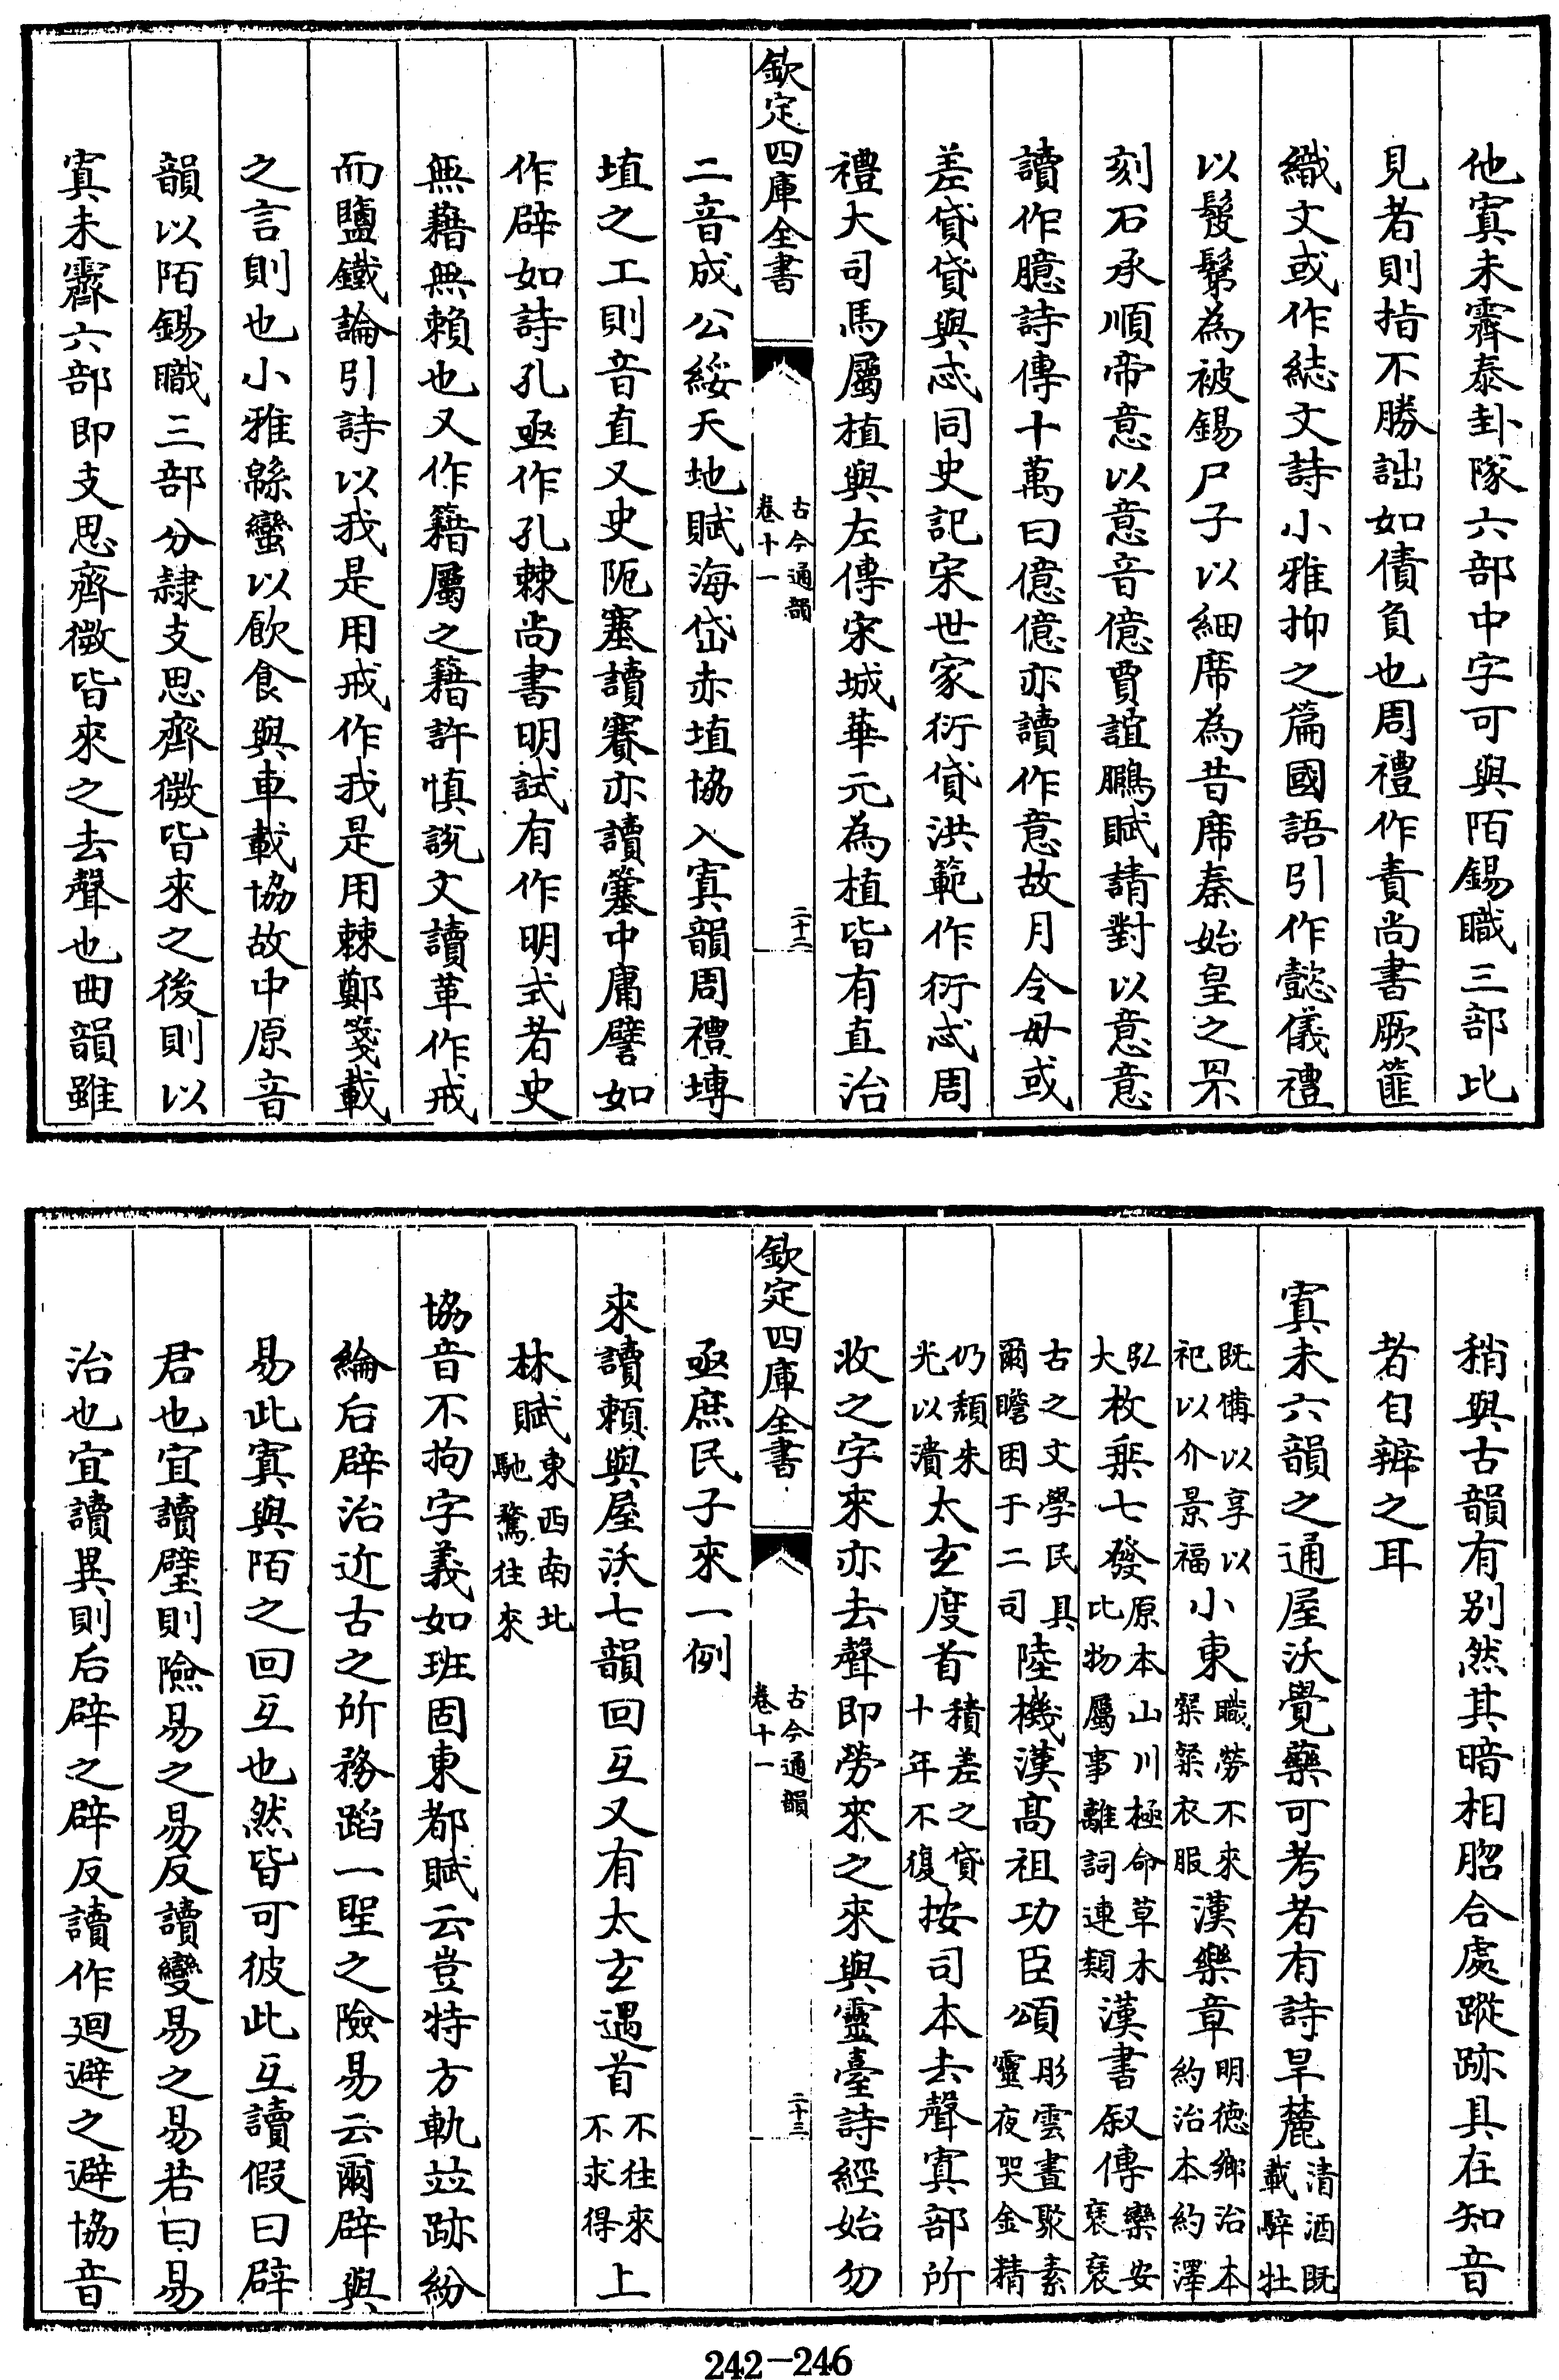 他寘未霽泰卦隊六部中字可與陌錫職三部比
見者則指不勝詘如債負也周禮作責尚書厥篚
織文或作綕文詩小雅抑之篇國語引作懿儀禮
以髲鬄為被錫尸子以細席為昔席秦始皇之罘
刻石承順帝意以意音億賈誼鵩賦請對以意意
讀作臆詩傳十萬曰億億亦讀作意故月令毋或
差貸貸與忒同史記宋世家衍貸洪範作衍忒周
禮大司馬屬植與左傳宋城華元為植皆有直治
欽定四庫全書
古今通韻
卷十一
二十二
二音成公綏天地賦海岱赤埴協入寘韻周禮塼
埴之工則音直又史阨塞讀賽亦讀簺中庸譬如
作辟如詩孔亟作孔棘尚書明試有作明式者史
無藉無賴也又作籍屬之籍許慎說文讀革作戒
而鹽鐵論引詩以我是用戒作我是用棘鄭箋載
之言則也小雅緜蠻以飲食與車載協故中原音
韻以陌錫職三部分隷支思齊微皆來之後則以
寘未霽六部即支思齊微皆來之去聲也曲韻雖
稍與古韻有别然其暗相脗合處蹤跡具在知音
者自辨之耳
寘未六韻之通屋沃覺藥可考者有詩旱麓清酒既載騂牡
既備以享以祀以介景福小東職勞不來粲粲衣服漢樂章明德鄉治本約治本約澤
弘大枚乗七發原本山川極命草木比物屬事離詞連類漢書叙傳欒安裒裒
古之文學民具爾瞻困于二司陸機漢高祖功臣頌彤雲晝聚素靈夜哭金精
仍頽朱光以瀆太玄度首積差之貸十年不復按司本去聲寘部所
收之字來亦去聲即勞來之來與靈臺詩經始勿
欽定四庫全書
古今通韻
卷十一
二十三
亟庶民子來一例
來讀賴與屋沃七韻回互又有太玄遇首不往來不求得上
林賦東西南北馳騖往來
協音不拘字義如班固東都賦云豈特方軌竝跡紛
綸后辟治近古之所務蹈一聖之險易云爾辟與
易此寘與陌之回互也然皆可彼此互讀假曰辟
君也宜讀璧則險易之易反讀變易之易若曰易
治也宜讀異則后辟之辟反讀作迴避之避協音
242-246